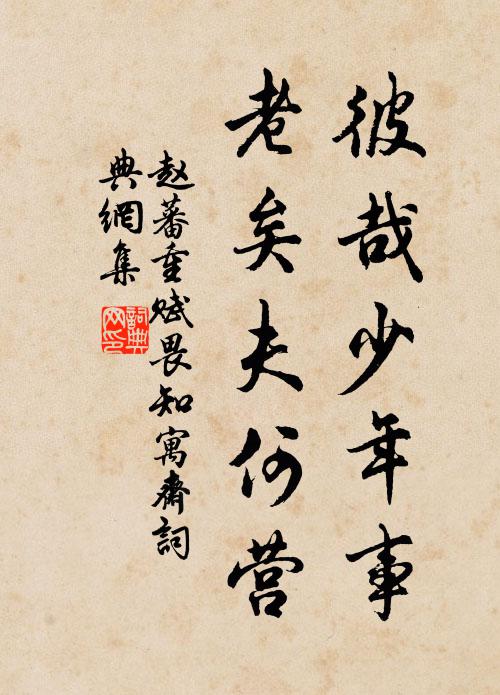 彼哉少年事
老矣夫何营
赵蕃重赋畏知寓斋詞
典網集
詞典网印